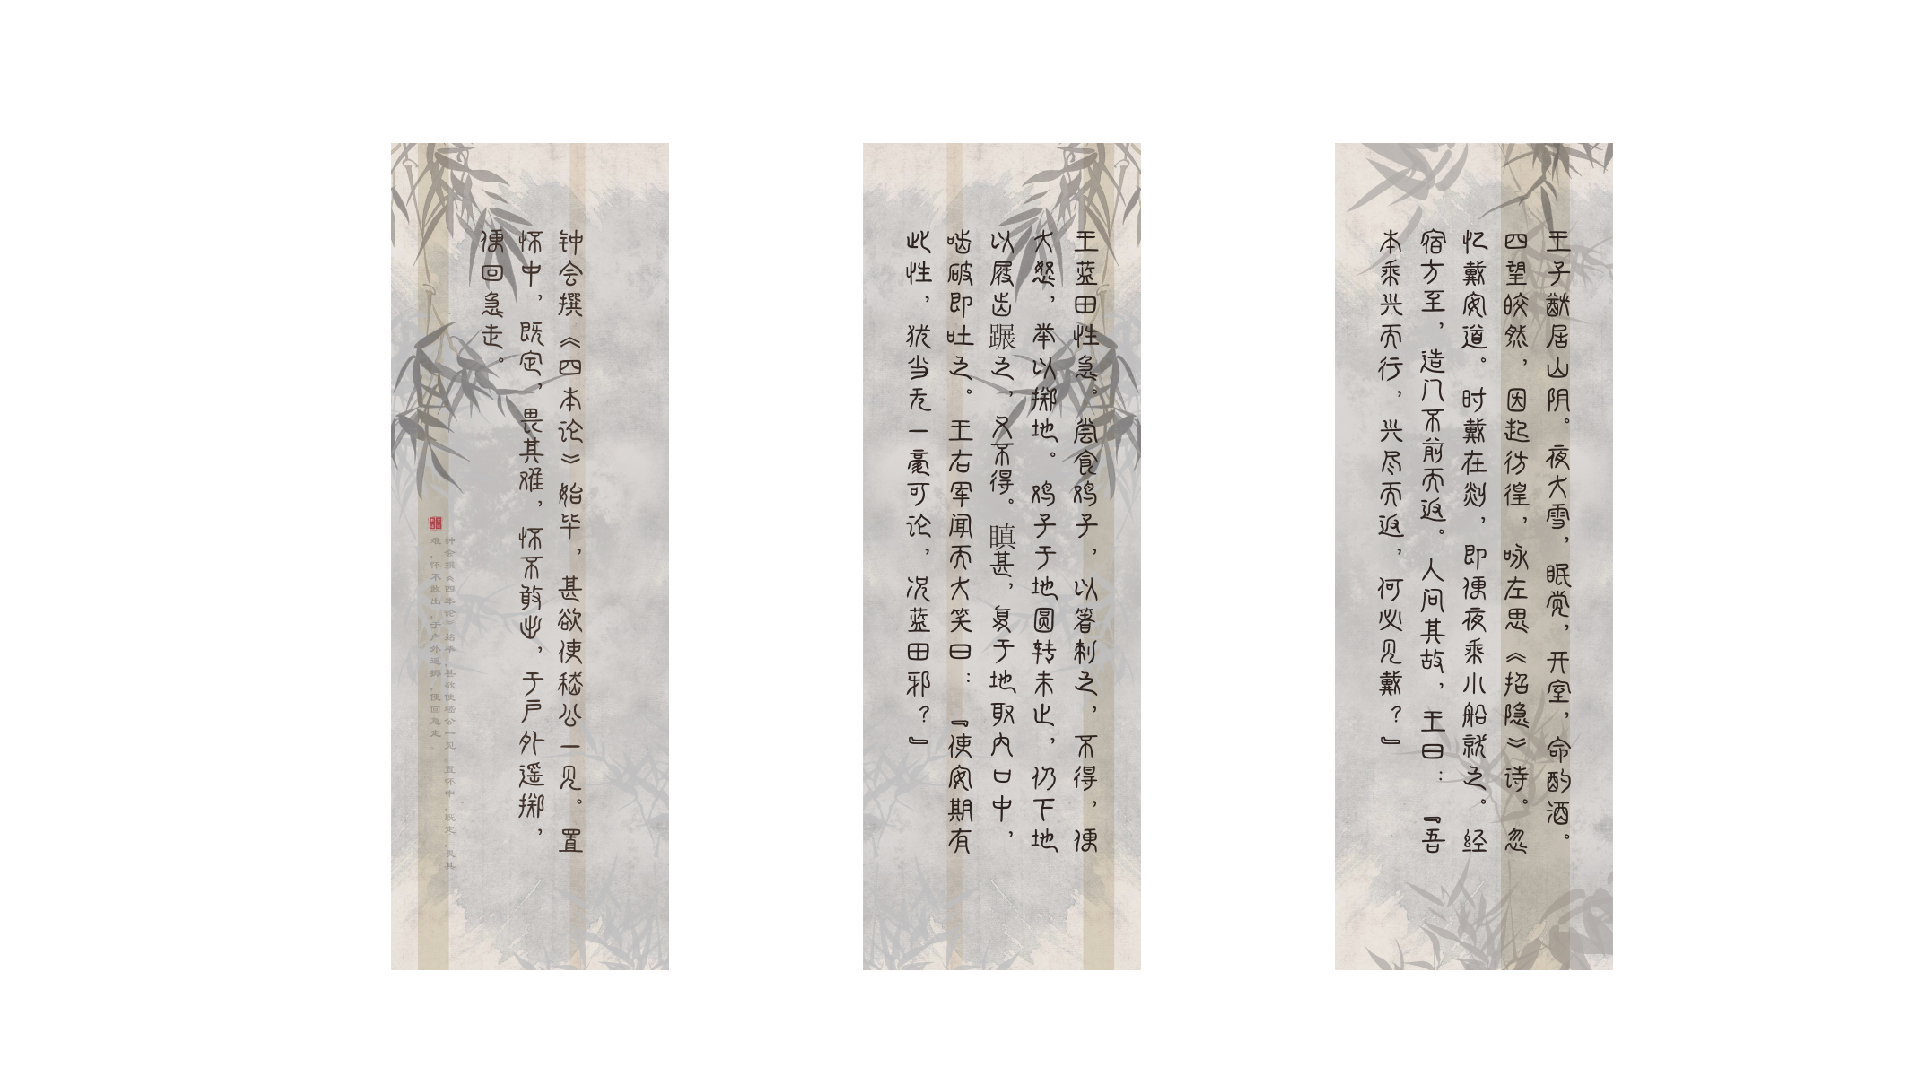 王子猷居山阴。夜大雪，眠觉，开室，命酌酒。
四望皎然，因起彷徨，咏左思《招隐》诗。忽
忆戴安道。时戴在剡，即便夜乘小船就之。经
宿方至，造门不前而返。人问其故，王曰：『吾
本乘兴而行，兴尽而返，何必见戴？』
王蓝田性急。尝食鸡子，以箸刺之，不得，便
大怒，举以掷地。鸡子于地圆转未止，仍下地
以屐齿蹍之，又不得。瞋甚，复于地取内口中，
啮破即吐之。王右军闻而大笑曰：『使安期有
此性，犹当无一豪可论，况蓝田邪？』
钟会撰《四本论》始毕，甚欲使嵇公一见。置
怀中，既定，畏其难，怀不敢出，于户外遥掷，
便回急走。
钟会撰《四本论》始毕，甚欲使嵇公一见。置怀中，既定，畏其
难，怀不敢出，于户外遥掷，便回急走。